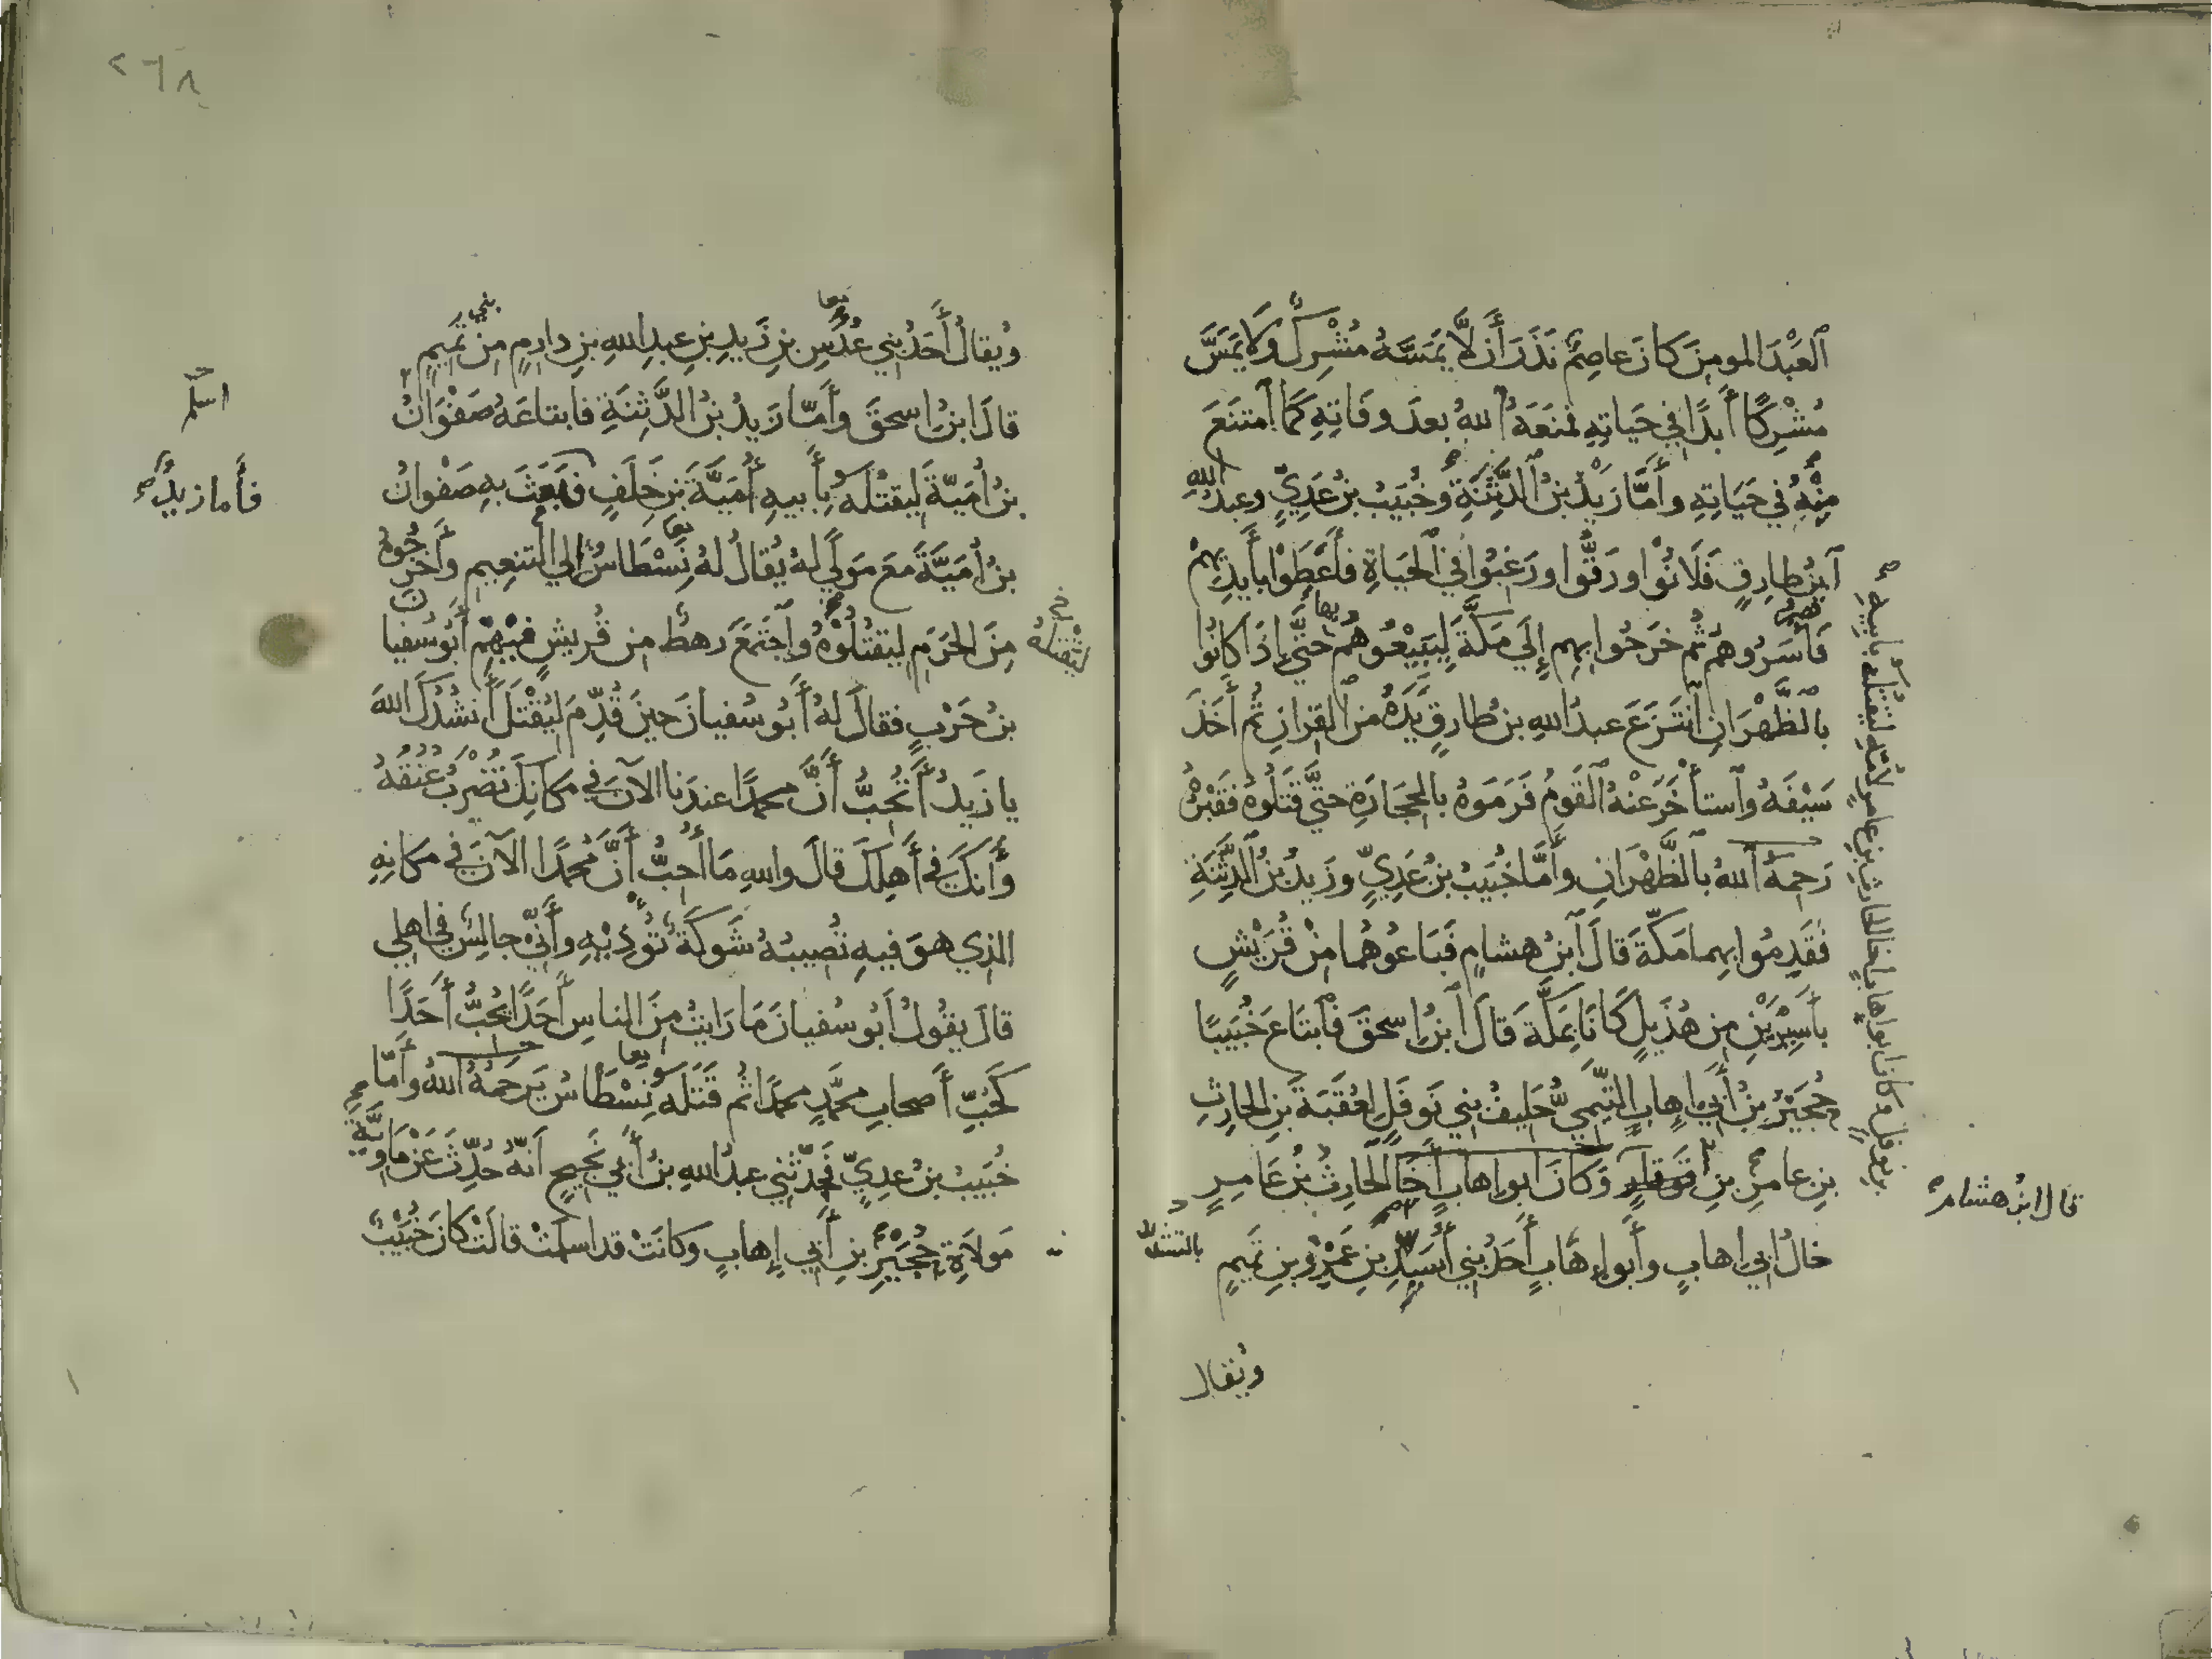 ٱلعَبْدَ المومِنَ كانَ عاصِمٌ نَذَرَ أَن لَّا يَمَسَّهُ مُشْرِكٌ وَلَا يَمَسَّ
مُشْرِكًا أَبَدًا في حَيَاتِهِ فمنَعَهُ ٱللهُ بعدَ وفَاتِهِ كَمَا ٱمتنَعَ
مِنْهُ في حَيَاتِهِ وأَمَّا زَيْدُ بنُ ٱلدَّثِنَةِ وخُبَيْبُ بنُ عَدِيٍّ وعبدُ الله
ٱبنُ طارِقٍ فَلَانُوْا ورَقُّوا ورَغِبُوْا في ٱلحَيَاةِ فأَعْطَوْا بأَيدِيهِمْ
فَأَسَرُوهُمْ ثُم خرَجُوا بِهِم إِلَي مَكَّةَ لِيَبِيْعُوهُمْ بها حتَّى إِذَا كانُوا
بٱلظَّهْرَانِ ٱنتَزَعَ عبدُ اللهِ بنُ طارِقٍ يَدَهُ من ٱلقِرانِ ثُم أَخَذَ
سَيْفَهُ وٱستأْخَرَ عَنْهُ ٱلقَومُ فَرَمَوهُ بالحِجَارَةِ حتَّى قَتَلُوهُ فقَبْرُهُ
رَحِمَهُ ٱللهُ بٱلظَّهْرَانِ وأَمَّا خُبَيبُ بنُ عَدِيٍّ وزَيدُ بنُ ٱلدَّثِنَةِ
فَقَدِمُوا بِهِما مَكّةَ قالَ ٱبنُ هشامٍ فَبَاعُوهُمَا مِنْ قُرَيْشٍ
بأَسِيْرَيْنِ مِن هُذَيلٍ كَانَا بمَكَّةَ قالَ ٱبنُ إِسحقَ فٱبتَاعَ خُبَيبًا
حُجَيْرُ بنُ أَبِي إِهابٍ التَّمِيمِيُّ حَلِيفُ بني نَوفَلٍ لعُقْبَةَ بنِ الحارِثِ
بنِ عامرِ بنِ نَوفَلٍ وَكانَ ابو إِهابٍ أَخَا ٱلحَارِثِ بنِ عَامِرٍ
خالُ ابي إهابٍ وأَبو إِهَابٍ أَحَدُ بني أُسَيِّدِ بنِ عَمْرِو بنِ تَميمٍ
بالتشديد
قال ابنُ هشام
بنِ نوفلٍ وكانَ ابو إهابٍ خا الحارثِ بنِ عامرٍ لأُمِّهِ لِيَقْتُلَهُ بأبيهِ
ويُقالُ
٢٦٨
ويُقالُ أَحَدُ بَني عُدُسِ بنِ زَيدِ بنِ عبدِ اللهِ بنِ دارِمٍ مِن بني تَمِيمٍ
قالَ ابنُ إِسحقَ وأَمّا زيدُ بنُ الدَّثِنَةِ فابتاعَهُ صَفْوَانُ
بنُ أُمَيّةَ لِيَقتُلَهُ بأَبيهِ أُمَيَّةَ بنِ خَلَفٍ فبَعَثَ بهِ صَفْوانُ
بنُ أُمَيَّةَ مَعَ مَولًى لهُ يُقالُ لهُ نِسْطَاسُ إلي التنعِيمِ وأَخرَجُوهُ
مِنَ الحَرَمِ ليَقتُلُوْهُ وٱجتَمَعَ رهطٌ من قُريشٍ فيْهِمْ أَبُو سُفيا
ن
بنُ حَرْبٍ فقالَ لهُ أَبُو سُفيانَ حينَ قُدِّمَ ليُقْتَلَ أَنشُدُكَ اللهَ
يا زَيدُ أَتُحِبُّ أَنَّ محمدًا عندَنا الآنَ في مَكانِكَ تُضْرَبُ عُنُقُهُ
وأَنكَ في أَهلِكَ قالَ واللهِ مَا أُحِبُّ أَنَّ مُحمدًا الآنَ في مكانِهِ
الذي هوَ فيهِ تُصيبُهُ شَوكَةٌ تُؤذِيْهِ وأَنِّي جالِسٌ في اهلِي
قالَ يقُولُ أَبُو سُفيانَ مَا رَايتُ مِنَ الناسِ أَحَدًا يُحبُّ أَحَدًا
كَحُبِّ أَصحابِ محمّدٍ محمدًا ثُم قَتَلَهُ نِسْطَاسُ يَرحَمُهُ اللهُ وأَمّا
خُبَيبُ بنُ عدِيٍّ فحدَّثَني عبدُ اللهِ بنُ أَبي نَجِيحٍ أَنّهُ حُدِّثَ عَنْ ماوِيَّةَ
مَولاَةِ حُجَيْرِ بنِ أَبي إِهابٍ وكانَتْ قد اسلَمَتْ قالَتْ كانَ خُبَيْبٌ
اسلم
فأما زيدٌ
لتقتله